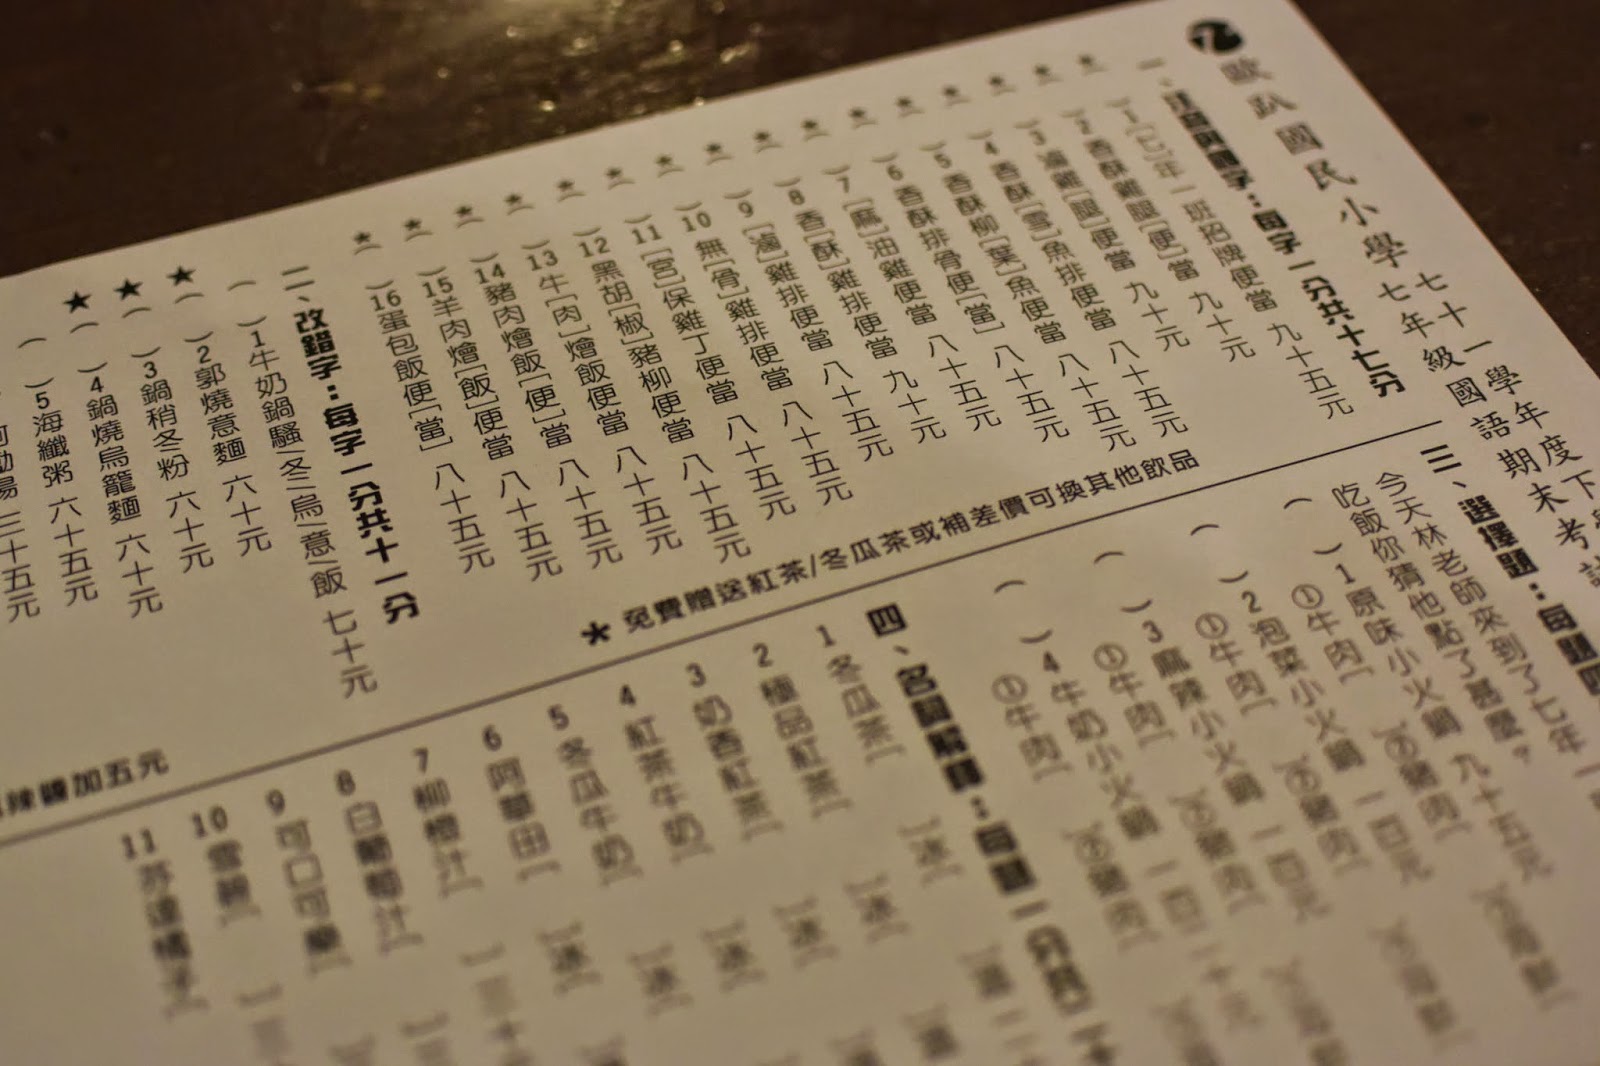 歐趴國民小學七十一學年度下
七年級國語期末考
一、注音與國字：每字一分共十七分
★( )1[七]年一班招牌便當 九十五元
★( )2香酥雞腿[便]當 九十元
★( )3滷雞[腿]便當 九十元
★( )4香酥[雪]魚排便當 八十五元
★( )5香酥柳[葉]魚便當 八十五元
★( )6香酥排骨便[當] 八十五元
★( )7[麻]油雞便當 九十元
★( )8香[酥]雞排便當 八十五元
★( )9[滷]雞排便當 八十五元
★( )10無[骨]雞排便當 八十五元
★( )11[宮]保雞丁便當 八十五元
★( )12黑胡[椒]豬柳便當 八十五元
★( )13牛[肉]燴飯便當 八十五元
★( )14豬肉燴飯[便]當 八十五元
★( )15羊肉燴[飯]便當 八十五元
★( )16蛋包飯便[當] 八十五元
二、改錯字：每字一分共十一分
( )1牛奶鍋騷/冬/烏/意/飯 七十元
★( )2郭燒薏麵 六十元
★( )3鍋稍冬粉 六十元
★( )4鍋燒烏籠麵 六十元
( )5海纖粥 六十五元
湯 三十五元
★免費贈送紅茶/冬瓜茶或補差價可換其他飲品
辣醬加五元
三、選擇題：每題四
今天林老師來到了七年一
吃飯你猜他點了甚麼？
( )1原味小火鍋 九十五元
①牛肉( )②豬肉(
( )2泡菜小火鍋 一百元
①牛肉( )②豬肉(
( )3麻辣小火鍋 一百元
①牛肉( )②豬肉(
( )4牛奶小火鍋 一百二十元
①牛肉( )②豬肉(
四、名詞解釋：每題一分共二十
1冬瓜茶[ ]冰[
2極品紅茶[ ]冰[
3奶香紅茶[ ]冰[
4紅茶牛奶[ ]冰[
5冬瓜牛奶[ ]冰[
6阿華田[ ]冰[
7柳橙汁[
8白葡萄汁[
9可口可樂[
10雪碧[
11芬達橘子[